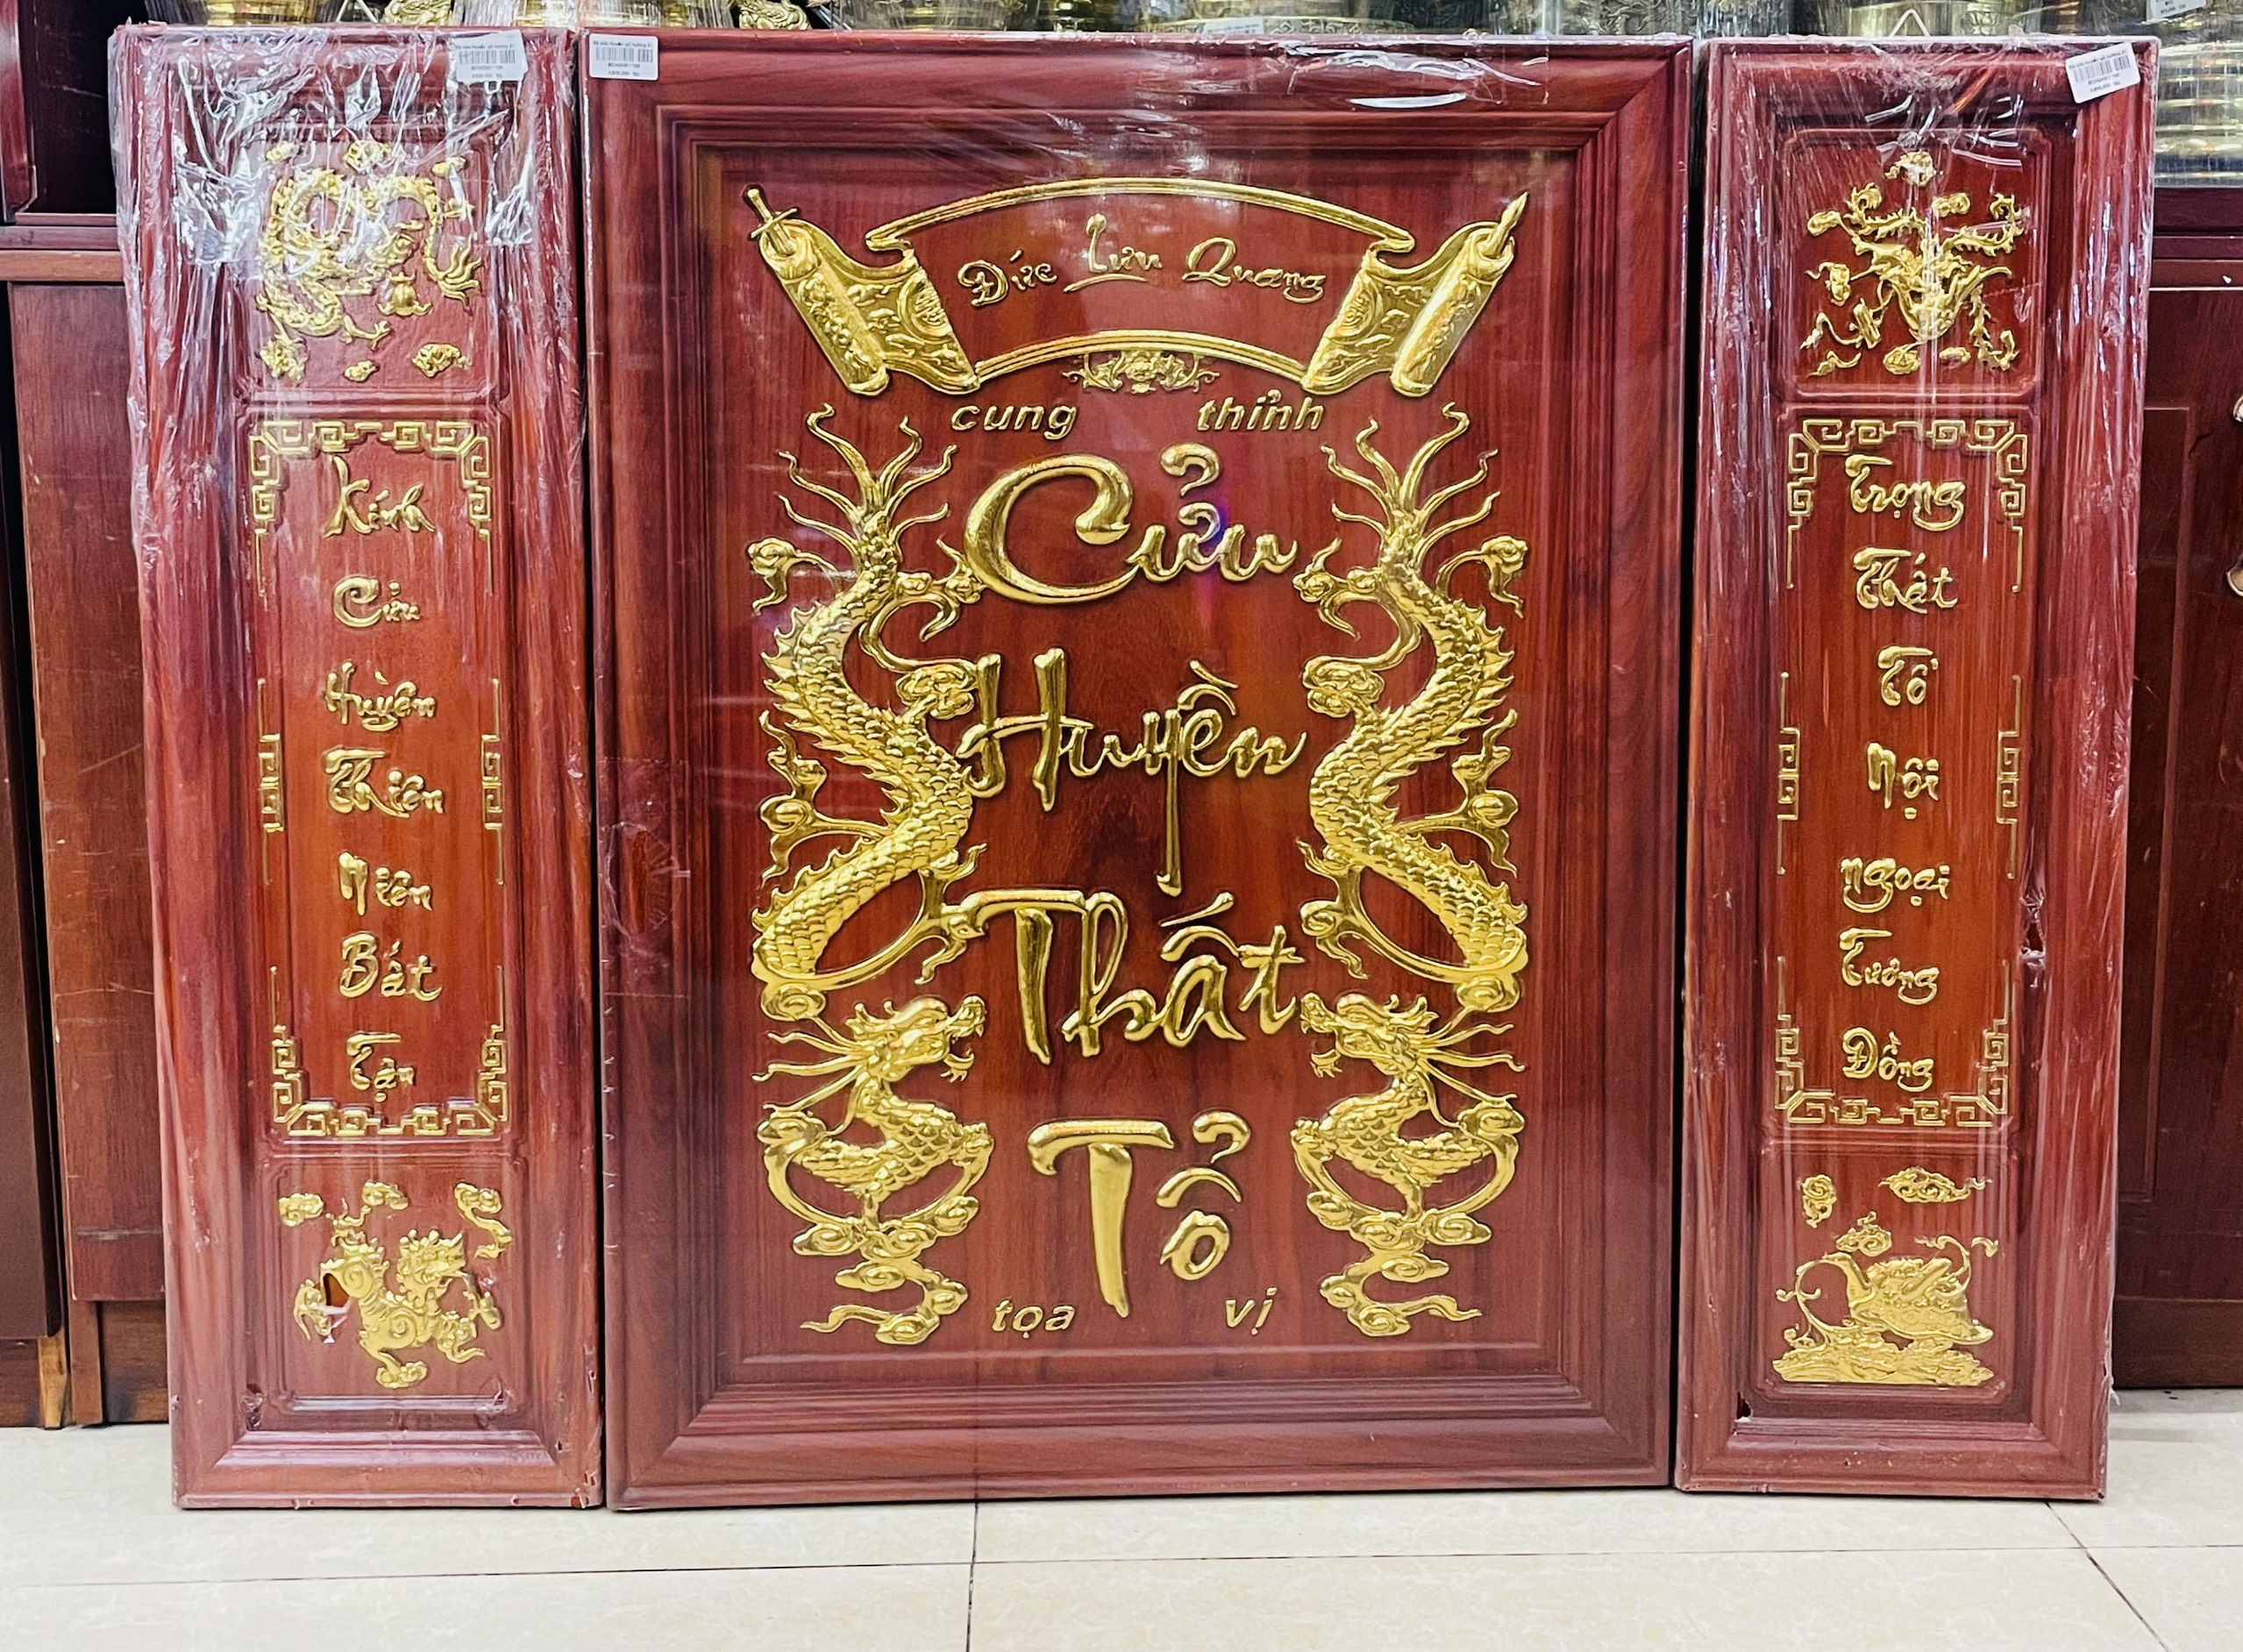 Kính
Cửu
Huyền
Thiên
Niên
Bất
Tận
Đức Lưu Quang
cung thỉnh
Cửu
Huyền
Thất
Tổ
tọa vị
Trọng
Thất
Tổ
Nội
ngoại
Tương
Đồng